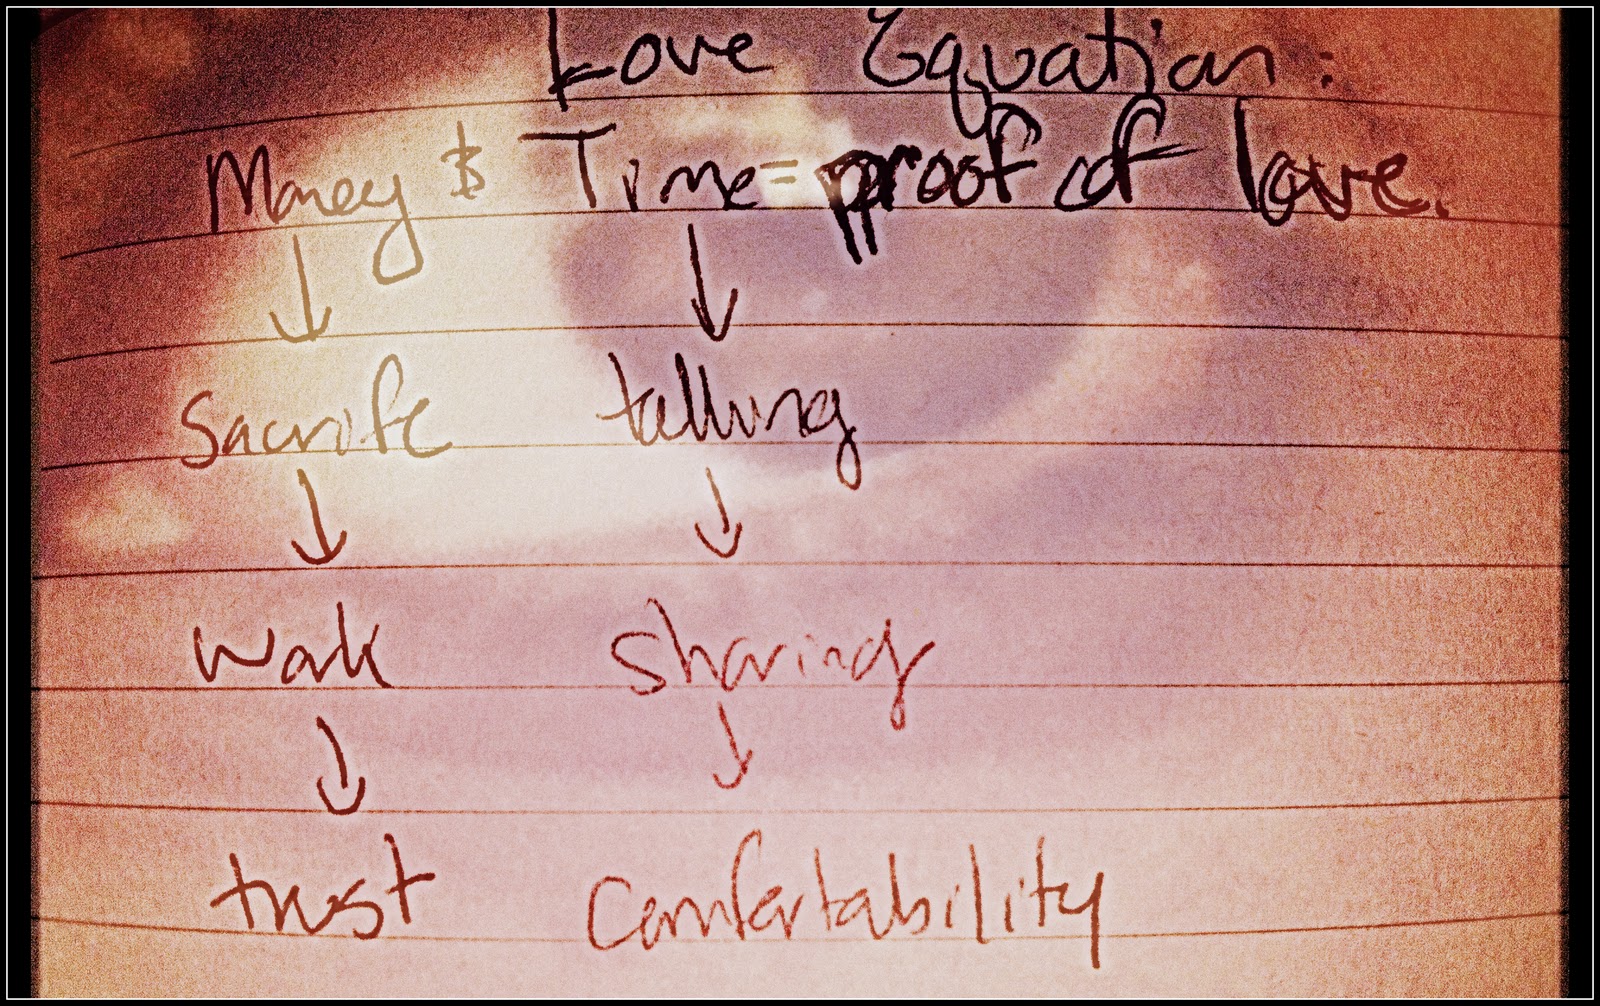 Love Equation:
Money & Time = proof of love.
↓ ↓
Sacrifc talking
↓ ↓
work sharing
↓ ↓
trust Comfortability